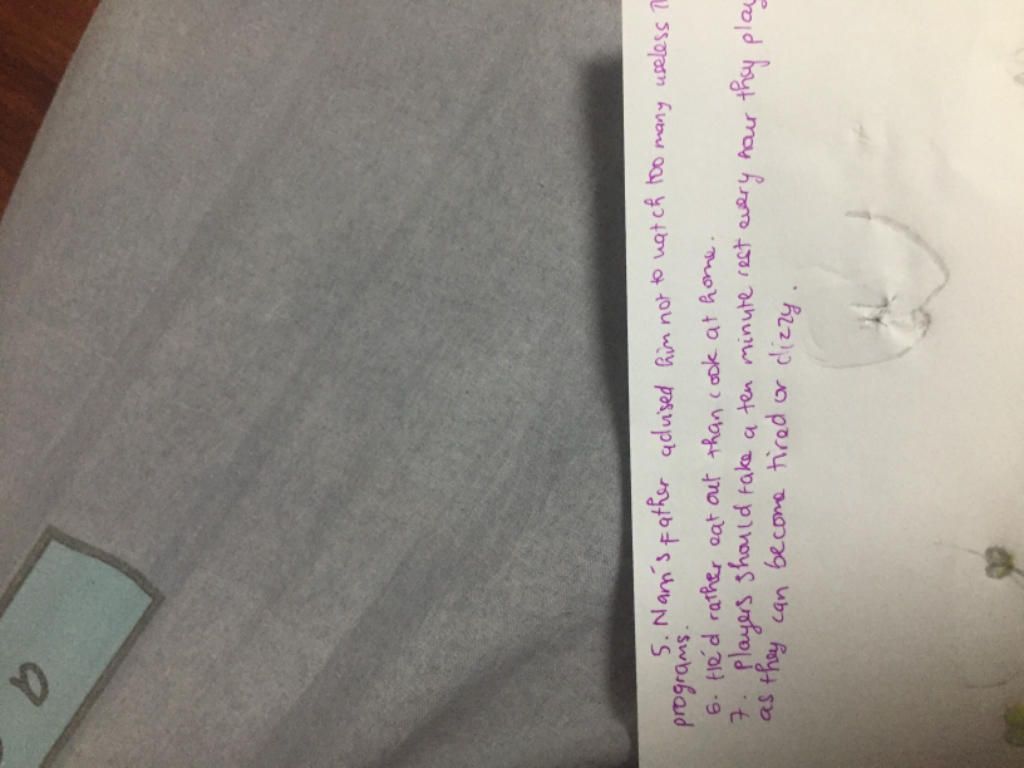 5. Nam's father advised him not to watch too many useless
programs.
6. He'd rather eat out than cook at home.
7. players should take a ten minute rest every hour they play
as they can become tired or dizzy.